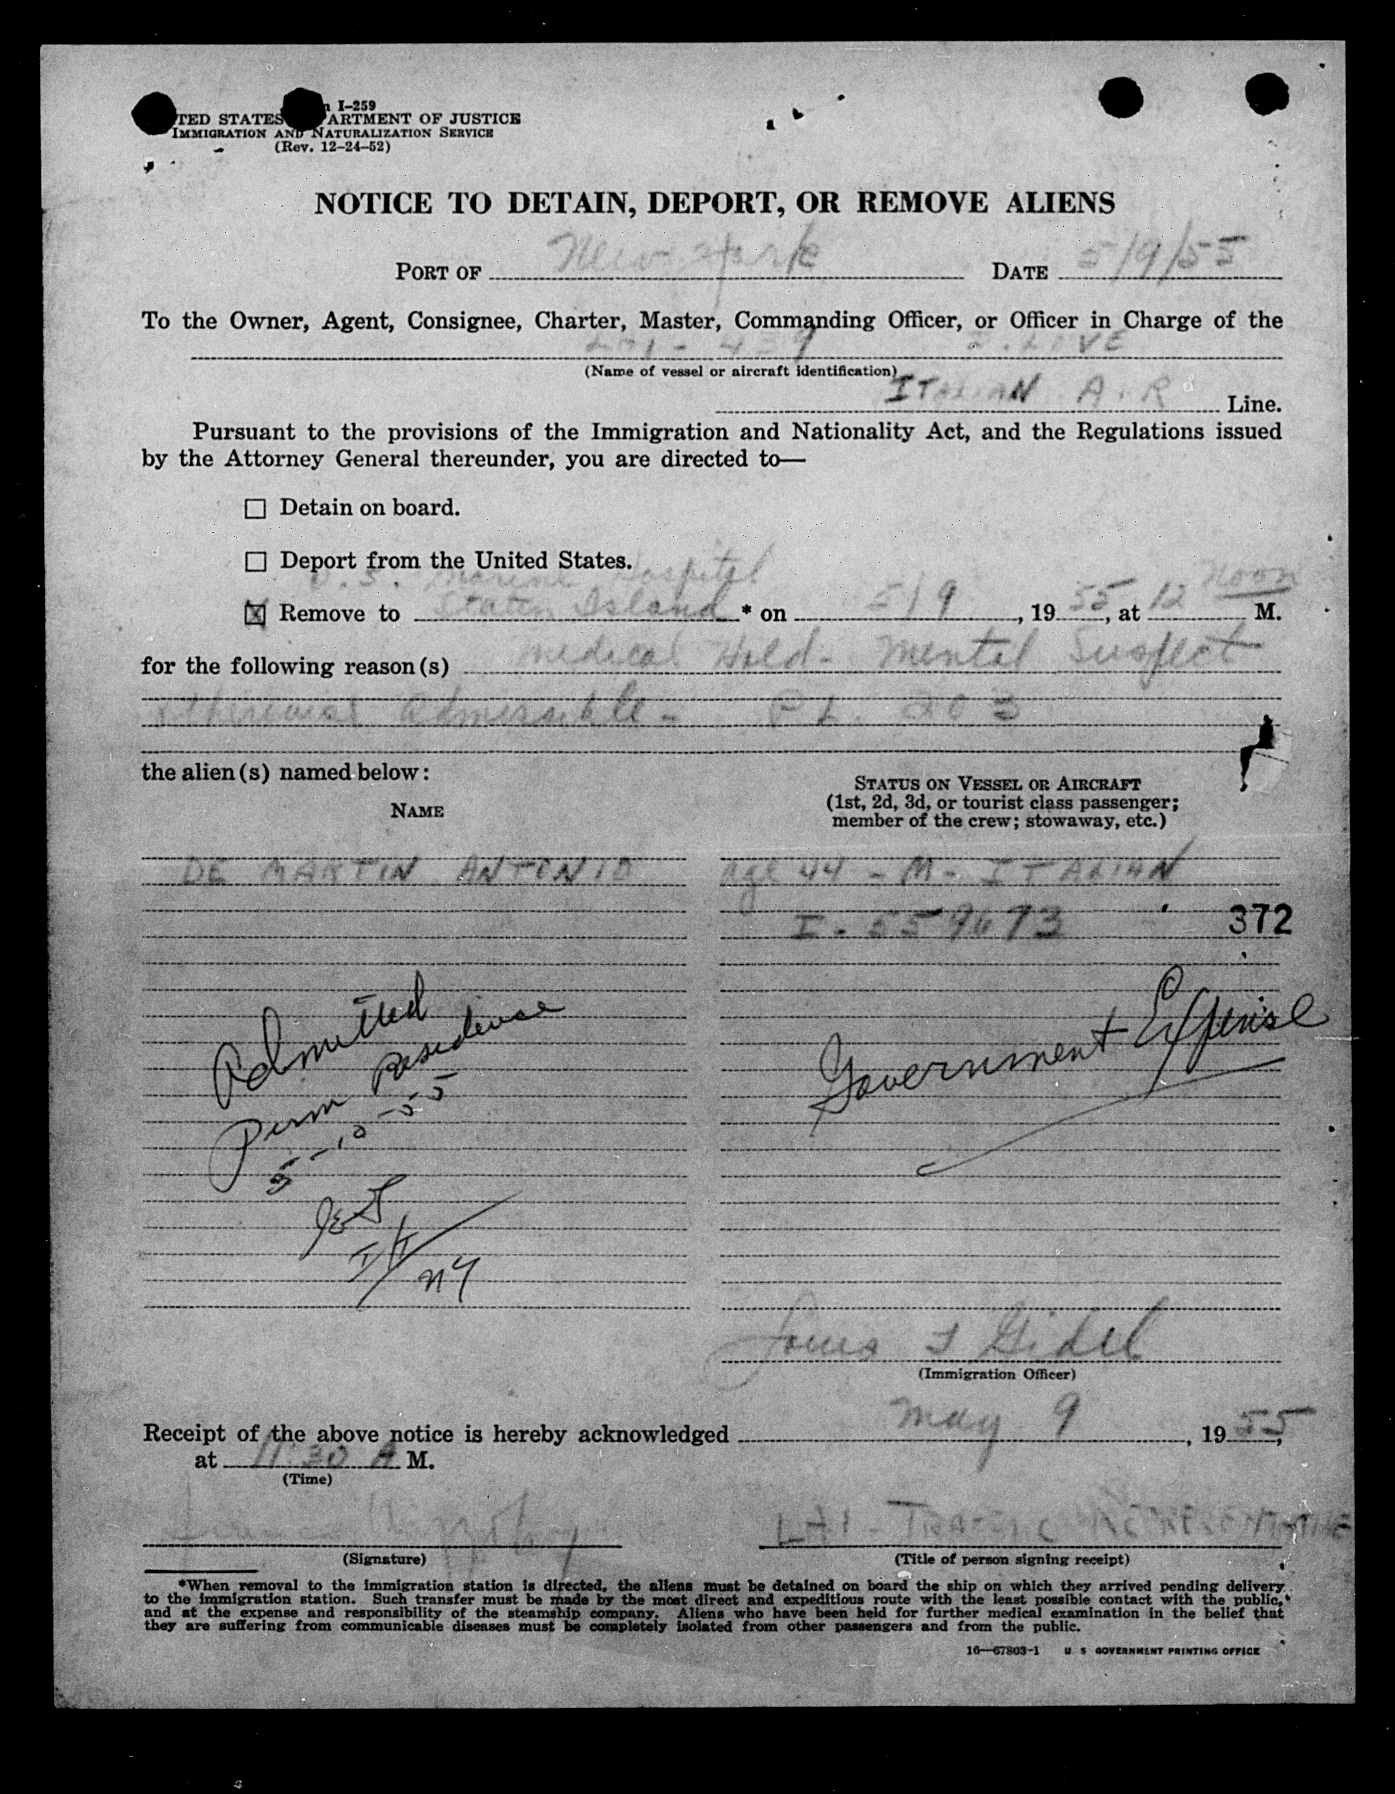 I-259
TED STATES ARTMENT OF JUSTICE
IMMIGRATION AND NATURALIZATION SERVICE
(Rev. 12-24-52)
NOTICE TO DETAIN, DEPORT, OR REMOVE ALIENS
PORT OF New York DATE 5/9/55
To the Owner, Agent, Consignee, Charter, Master, Commanding Officer, or Officer in Charge of the
439
(Name of vessel or aircraft identification)
ITALIAN AIR Line.
Pursuant to the provisions of the Immigration and Nationality Act, and the Regulations issued
by the Attorney General thereunder, you are directed to—
☐ Detain on board.
☐ Deport from the United States.
U.S. Marine Hospital
☒ Remove to Staten Island * on 5/9, 1955, at 12 Noon M.
for the following reason(s) Medical Hold - Mental Suspect
otherwise Admissible - PL. 203
the alien(s) named below:
NAME
STATUS ON VESSEL OR AIRCRAFT
(1st, 2d, 3d, or tourist class passenger;
member of the crew; stowaway, etc.)
DE MARTIN ANTONIO age 44 - M - ITALIAN
I-559673 372
Admitted
Perm Residence
5-10-55
NY
Government Expense
Louis F Gidel
(Immigration Officer)
Receipt of the above notice is hereby acknowledged May 9, 1955,
at 11:30 A M.
(Time)
LAI - TRAFFIC REPRESENTATIVE
(Signature) (Title of person signing receipt)
*When removal to the immigration station is directed, the aliens must be detained on board the ship on which they arrived pending delivery
to the immigration station. Such transfer must be made by the most direct and expeditious route with the least possible contact with the public,
and at the expense and responsibility of the steamship company. Aliens who have been held for further medical examination in the belief that
they are suffering from communicable diseases must be completely isolated from other passengers and from the public.
16—67803-1 U. S. GOVERNMENT PRINTING OFFICE